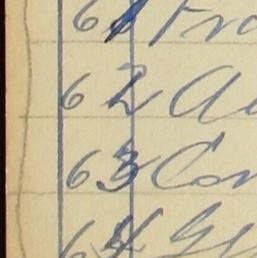 61 Fra
62 Au
63 Con
64 Ge